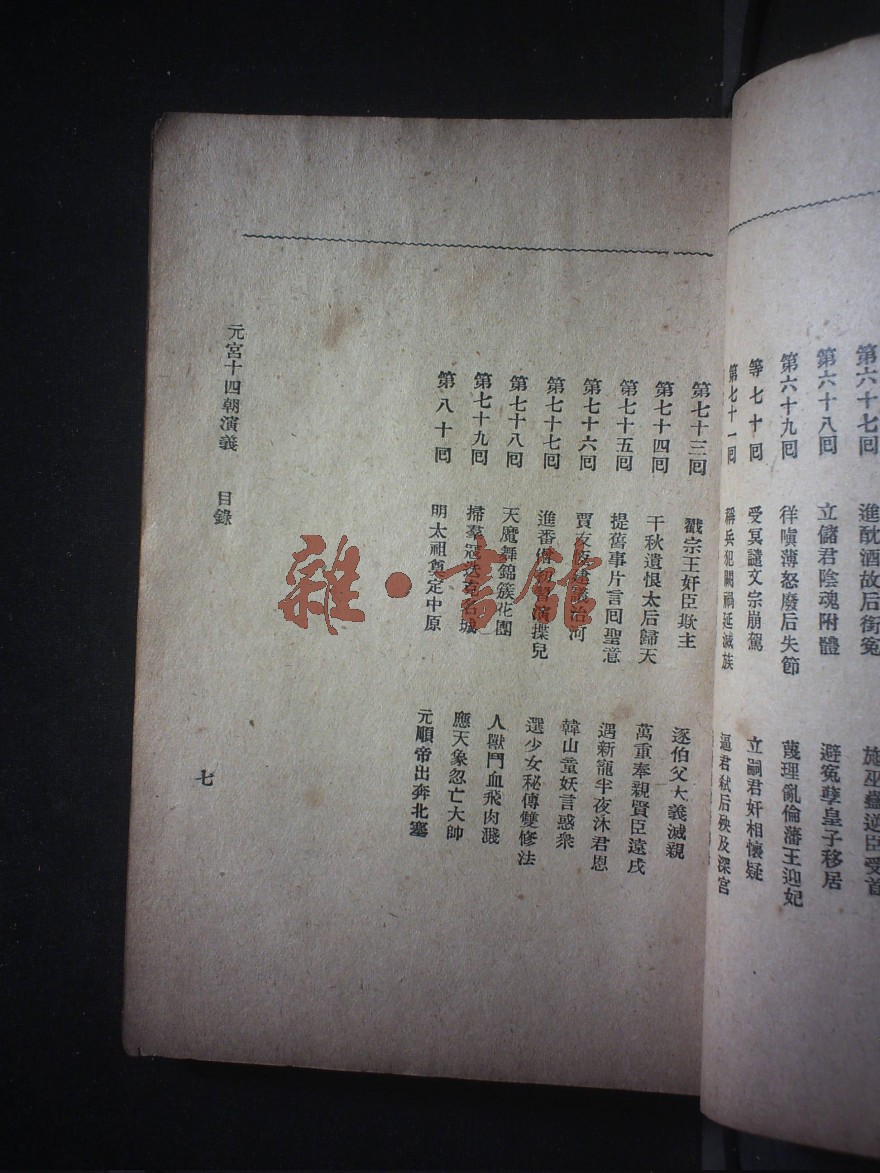 第六十七回　進酖酒故后銜冤　施巫蠱逆臣受首
第六十八回　立儲君陰魂附體　避冤孽皇子移居
第六十九回　徉嗔薄怒廢后失節　蔑理亂倫藩王迎妃
等七十回　受冥譴文宗崩駕　立嗣君奸相懷疑
第七十一回　稱兵犯闕禍延滅族　逼君弒后殃及深宮
第七十三回　戳宗王奸臣欺主　逐伯父大義滅親
第七十四回　千秋遺恨太后歸天　萬重奉親賢臣遠戍
第七十五回　提舊事片言囘聖意　遇新寵半夜沐君恩
第七十六回　賈友治河　韓山童妖言惑衆
第七十七回　進番僧演揲兒　選少女秘傳雙修法
第七十八回　天魔舞錦簇花團　人獸鬥血飛肉濺
第七十九回　掃羣寇名城　應天象忽亡大帥
第八十回　明太祖奠定中原　元順帝出奔北塞
元宮十四朝演義　目錄
七
雜·書館